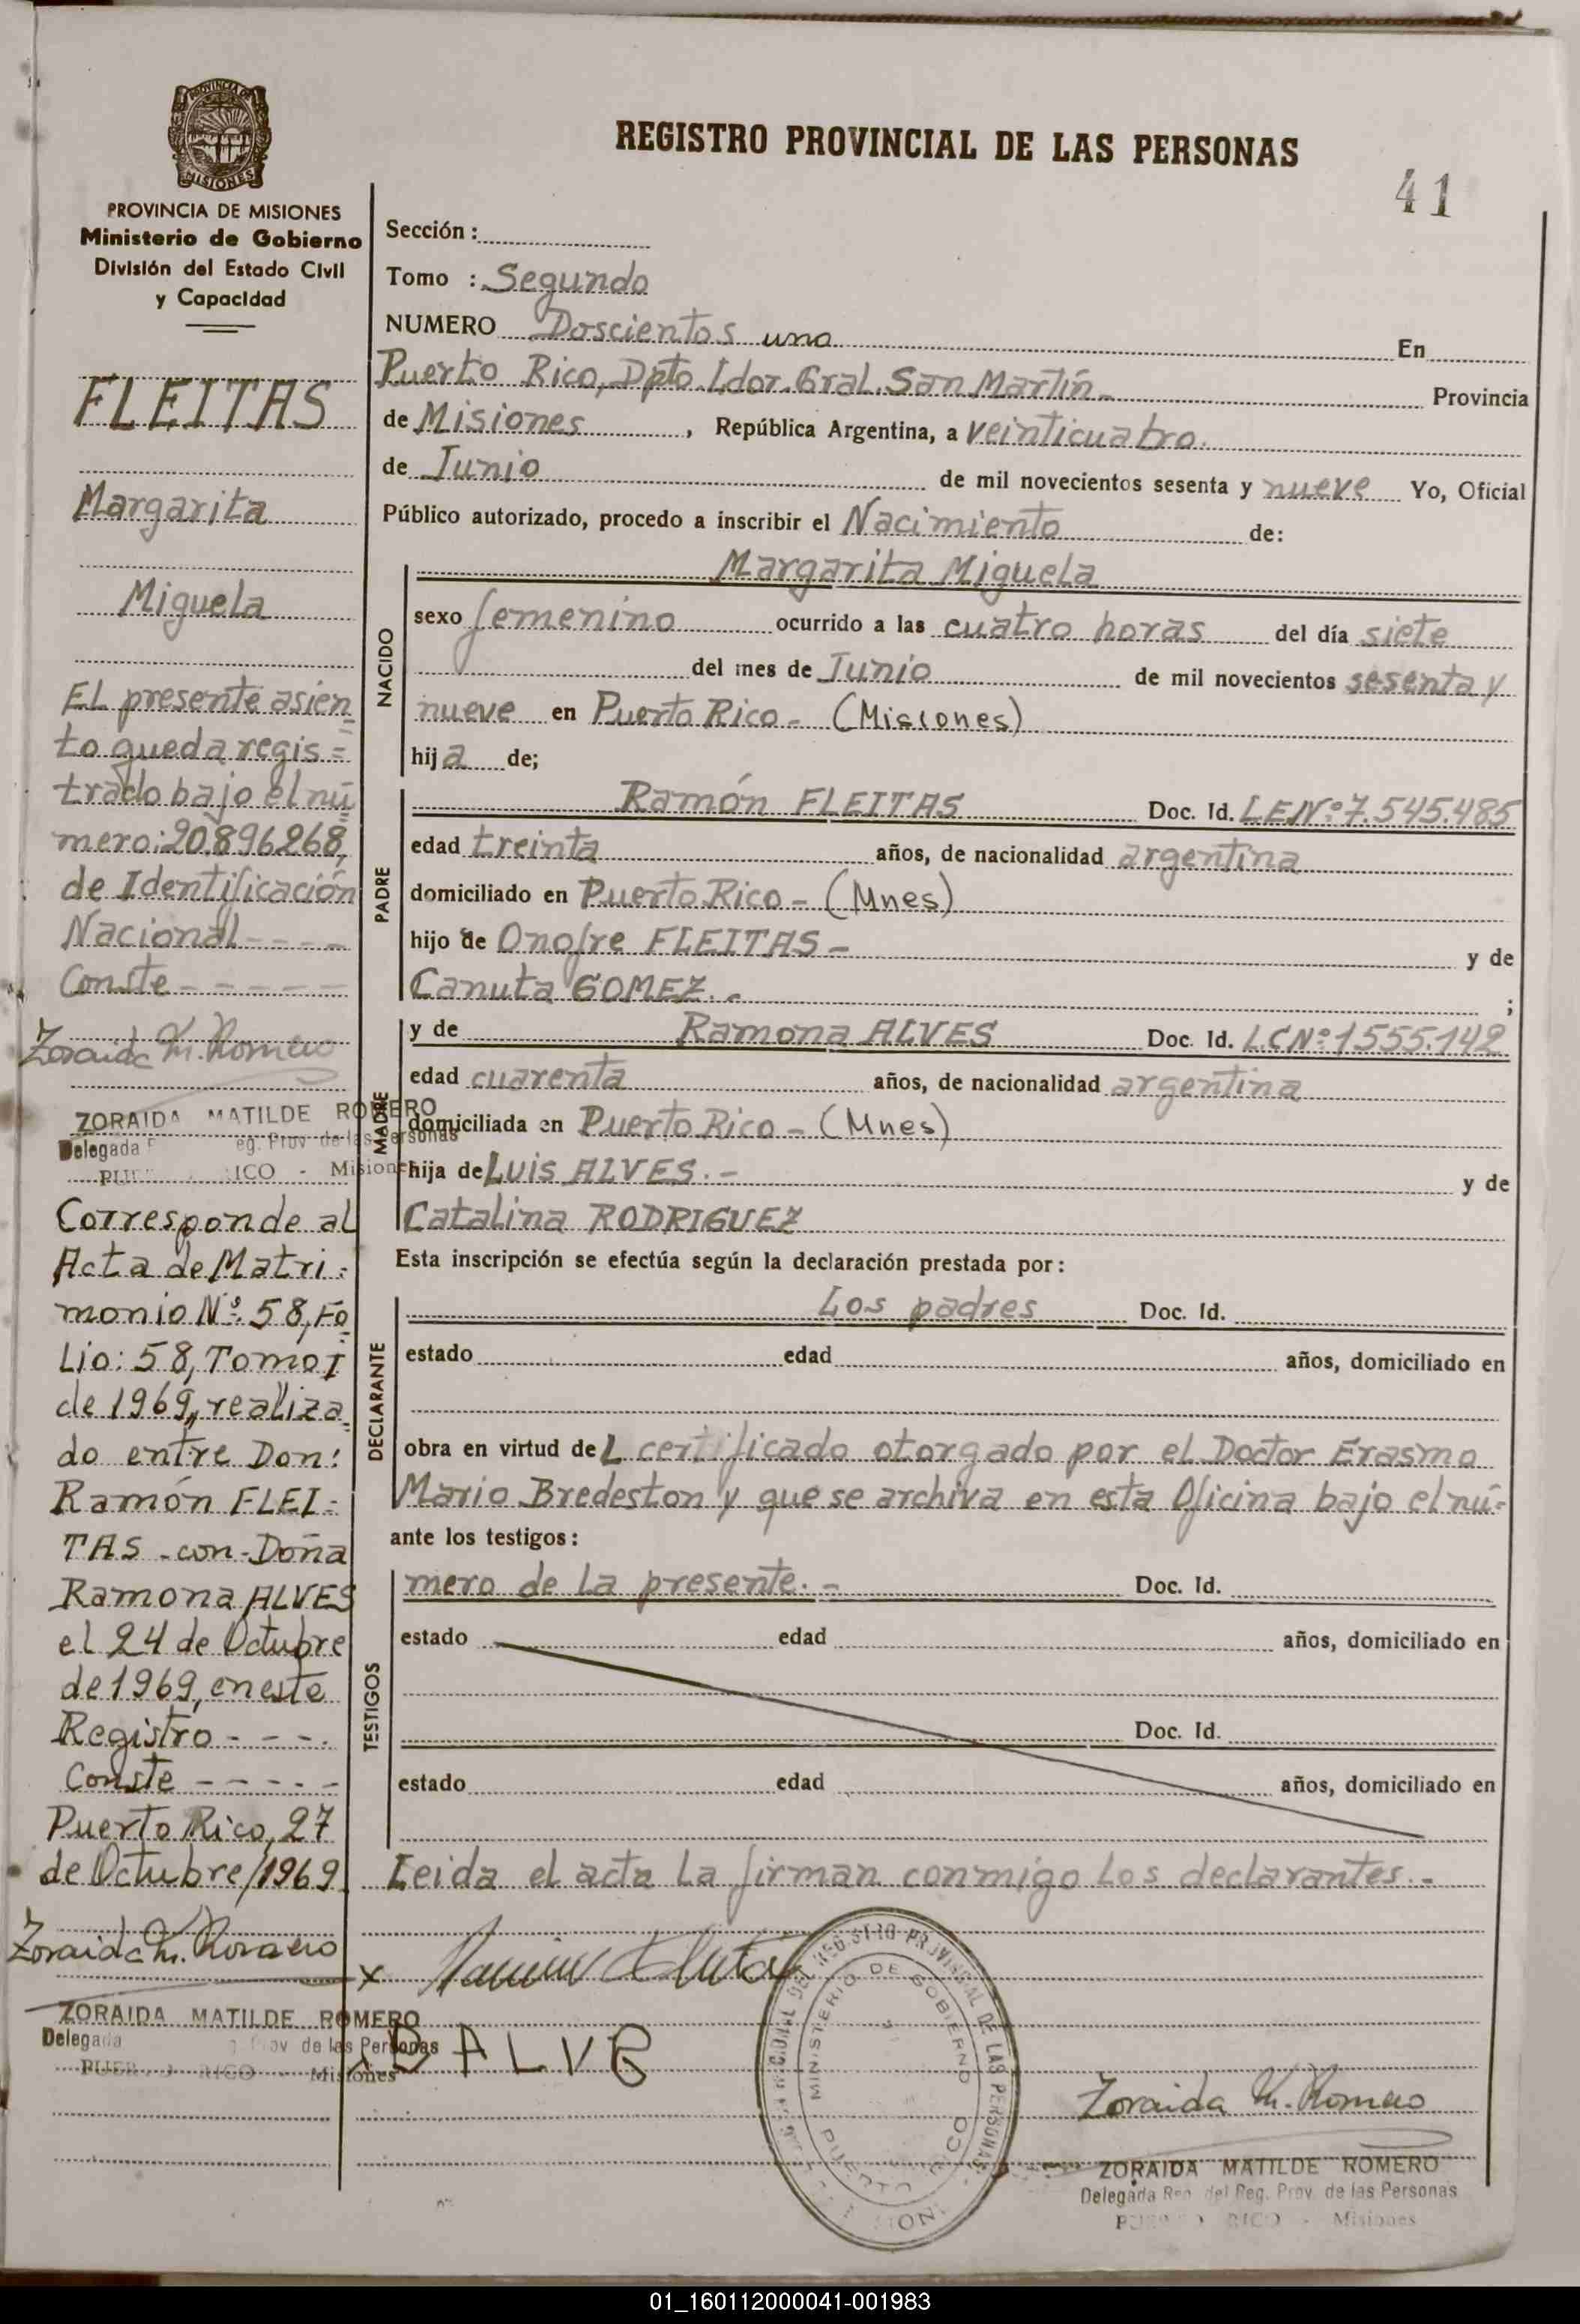 PROVINCIA DE MISIONES
PROVINCIA DE MISIONES
Ministerio de Gobierno
División del Estado Civil
y Capacidad
FLEITAS
Margarita
Miguela
EL presente asien
to queda regis=
trado bajo el nú
mero: 20.896.268,
de Identificación
Nacional - - - -
Conste - - - - -
Zoraida M. Romero
ZORAIDA MATILDE ROMERO
Delegada eg. Prov de las Personas
RICO - Misiones
Corresponde al
Acta de Matri=
monio Nº: 58, Fo
Lio: 58, Tomo I
de 1969,, realiza
do entre Don:
Ramón FLEI=
TAS - con - Doña
Ramona ALVES
el 24 de Octubre
de 1969, en este
Registro - - -.
Conste - - - - -
Puerto Rico, 27
de Octubre/1969
Zoraida M. Romero
ZORAIDA MATILDE ROMERO
Delegada Prov de las Personas
PUERTO RICO - Misiones
REGISTRO PROVINCIAL DE LAS PERSONAS
41
Sección:
Tomo : Segundo
NUMERO Doscientos uno En
Puerto Rico, Dpto. Ldor. Gral. San Martín - Provincia
de Misiones, República Argentina, a veinticuatro.
de Junio de mil novecientos sesenta y nueve Yo, Oficial
Público autorizado, procedo a inscribir el Nacimiento de:
NACIDO
Margarita Miguela
sexo femenino ocurrido a las cuatro horas del día siete
del mes de Junio de mil novecientos sesenta y
nueve en Puerto Rico - (Misiones)
hija de;
PADRE
Ramón FLEITAS Doc. Id. LE Nº: 7.545.485
edad treinta años, de nacionalidad argentina
domiciliado en Puerto Rico - (Mnes)
hijo de Onofre FLEITAS - y de
Canuta GOMEZ. - ;
MADRE
y de Ramona ALVES Doc. Id. L.C Nº: 1555.142
edad cuarenta años, de nacionalidad argentina
domiciliada en Puerto Rico - (Mnes)
hija de Luis ALVES. - y de
Catalina RODRIGUEZ
Esta inscripción se efectúa según la declaración prestada por:
DECLARANTE
Los padres Doc. Id.
estado edad años, domiciliado en
obra en virtud deL certificado otorgado por el Doctor Erasmo
Mario Bredeston y que se archiva en esta Oficina bajo el nú=
ante los testigos:
TESTIGOS
mero de La presente. - Doc. Id.
estado edad años, domiciliado en
Doc. Id.
estado edad años, domiciliado en
Leida el acta La firman conmigo Los declarantes. -
x
ALV
REGISTRO PROVINCIAL DE LAS PERSONAS
MINISTERIO DE GOBIERNO
PUERTO RICO
Zoraida M. Romero
ZORAIDA MATILDE ROMERO
Delegada Rep. del Reg. Prov. de las Personas
PUERTO RICO - Misiones
01_160112000041-001983